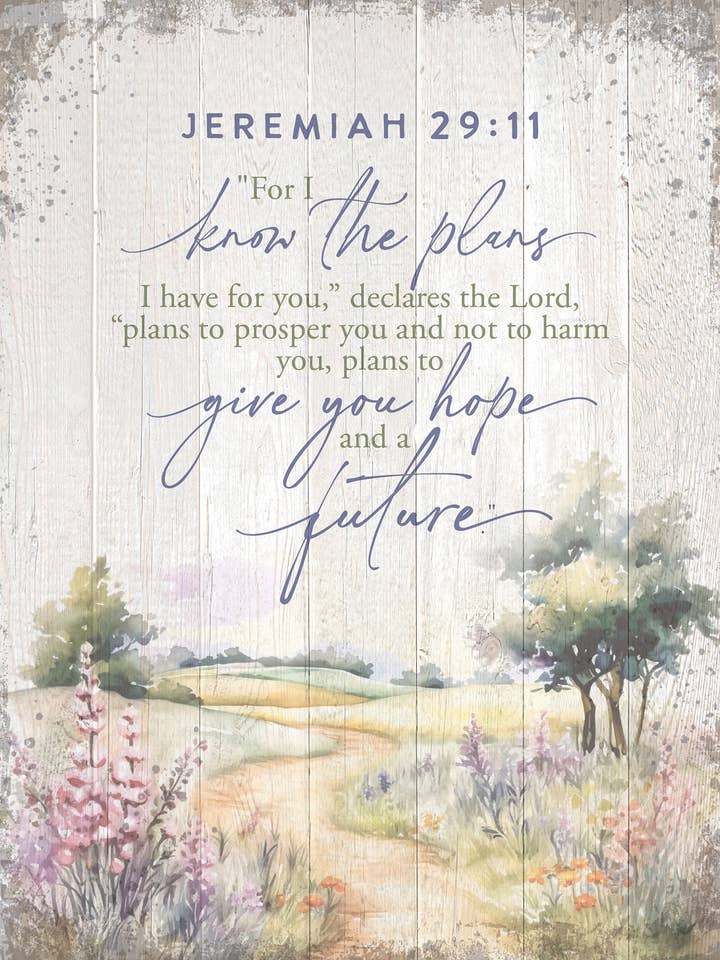 JEREMIAH 29:11
"For I
know the plans
I have for you,” declares the Lord,
“plans to prosper you and not to harm
you, plans to
give you hope
and a
future."